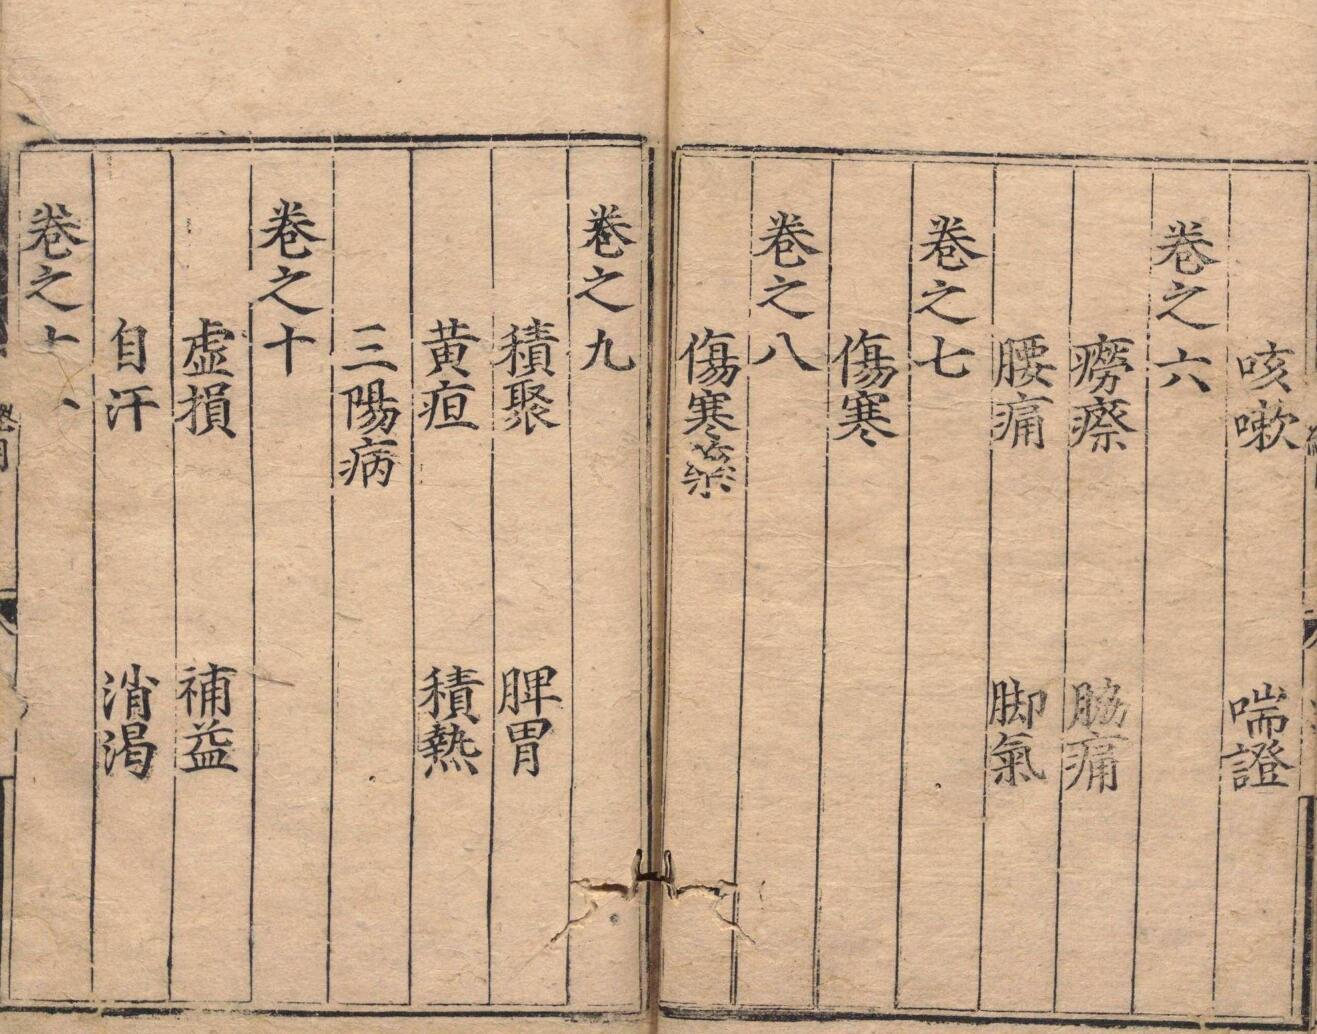 咳嗽 喘證
卷之六
癆瘵 脇痛
腰痛 脚氣
卷之七
傷寒
卷之八
傷寒
卷之九
積聚 脾胃
黃疸 積熱
三陽病
卷之十
虛損 補益
自汗 消渴
卷之十